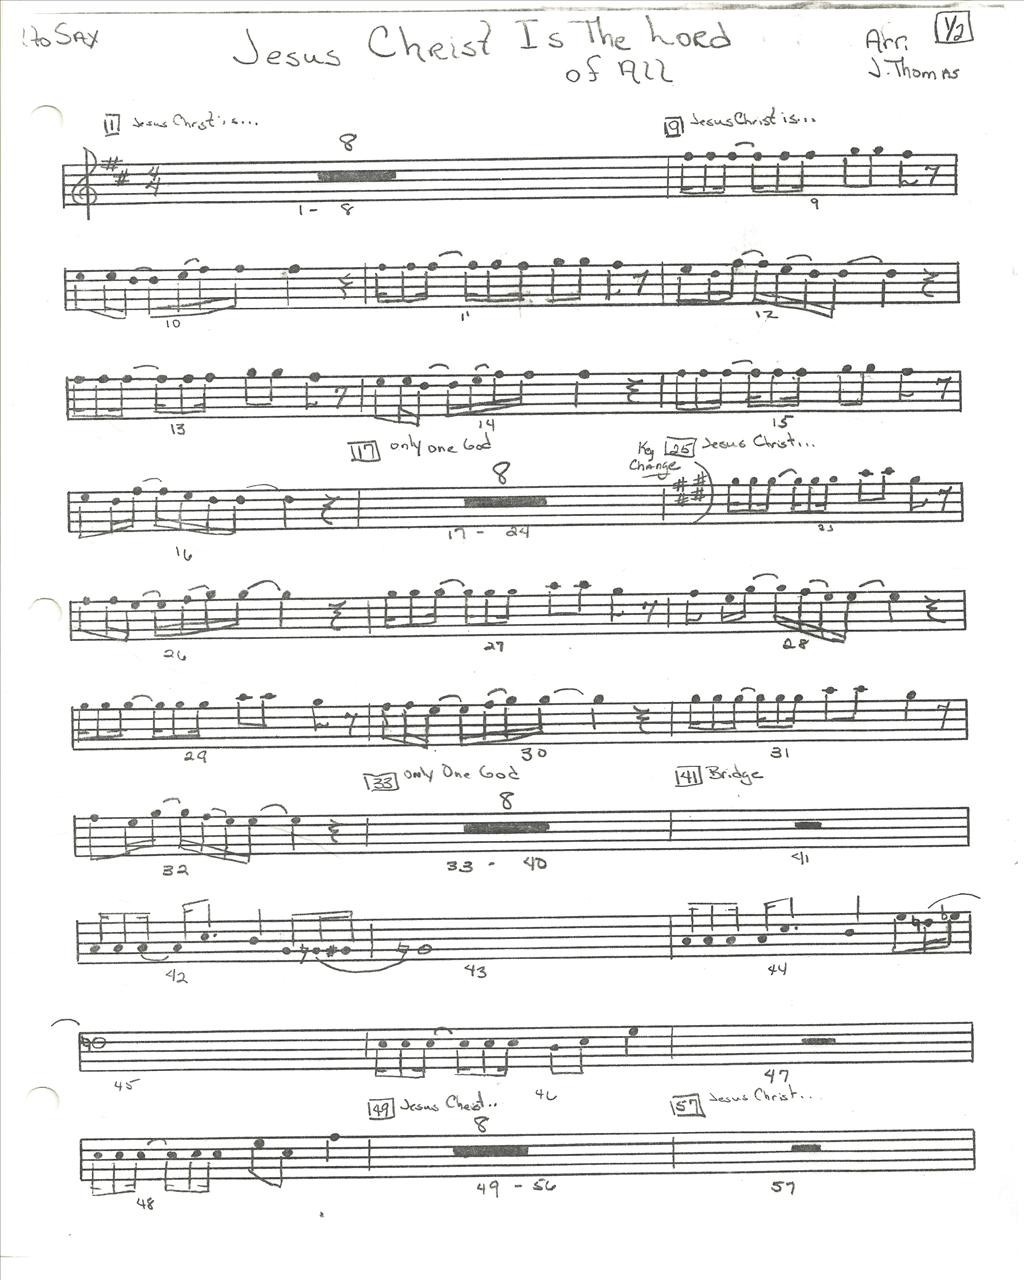 lto SAX
Jesus Christ Is The Lord
of All
Arr:
J. Thomas
1/2
1 Jesus Christ is...
9 Jesus Christ is...
8
4
4
1 - 8
9
10
11
12
13
14
15
17 only one God
Key
Change
25 Jesus Christ...
8
16
17 - 24
25
26
27
28
29
30
31
33 Only One God
41 Bridge
8
32
33 - 40
41
42
43
44
45
46
47
49 Jesus Christ..
57 Jesus Christ...
8
48
49 - 56
57